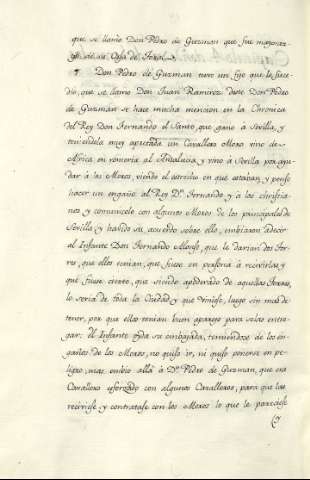 que se llamó Don Pedro de Guzman que fue mayoraz
go de su Casa de Toral.
¶ Don Pedro de Guzman tuvo un fijo que le suce-
dio, que se llamo Don Juan Ramirez deste Don Pedro
de Guzmán se hace mucha mencion en la Chronica
del Rey Don Fernando el Santo, que gano a Sevilla, y
teniendola muy apretada un Cavallero Moro vino de
Africa en romeria al Andalucia, y vino á Sevilla por ayu-
dar á los Moros, viendo el estrecho en que estaban, y penso
hacer un engaño al Rey Dn. Fernando, y á los christia-
nos, y comunicolo con algunos Moros de los principales de
Sevilla, y havido su acuerdo sobre ello, embiaron á decir
al Infante Don Fernando Alonso, que le darian dos tor-
res, que ellos tenian, que fuese en persona á recivirlas, y
que fuese cierto, que siendo apoderado de aquellas Torres,
lo seria de toda la Ciudad, y que viniese, luego sin mas de-
tener, por que ellos tenian buen aparejo para selas entre-
gar. El Infante oyda su embajada, temiendose de los en-
gaños de los Moros, no quiso ir, ni quiso ponerse en pe-
ligro, mas embio allá à Dn. Pedro de Guzman, que era
Cavallero esforzado con algunos Cavalleros, para que las
reciviese y contratase con los Moros lo que le pareciese